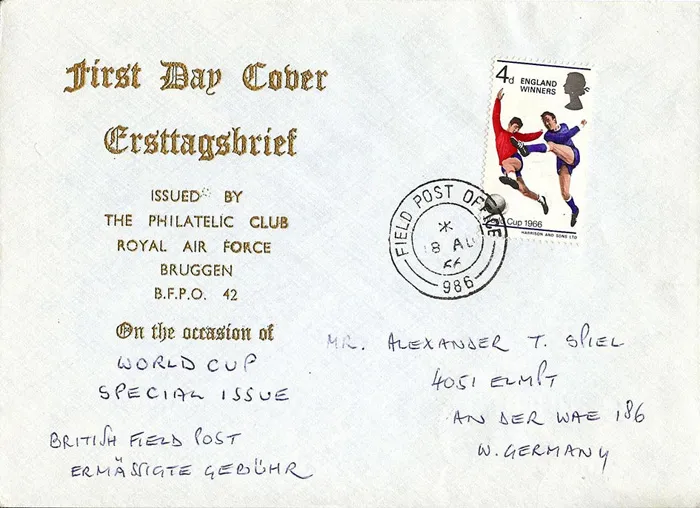 First Day Cover
Ersttagsbrief
ISSUED BY
THE PHILATELIC CLUB
ROYAL AIR FORCE
BRUGGEN
B.F.P.O. 42
On the occasion of
WORLD CUP
SPECIAL ISSUE
BRITISH FIELD POST
ERMÄSSIGTE GEBÜHR
4d ENGLAND
WINNERS
Cup 1966
HARRISON AND SONS LTD
FIELD POST OFFICE
*
8 AU
66
986
MR. ALEXANDER T. SPIEL
4051 ELMPT
AN DER WAE 186
W. GERMANY